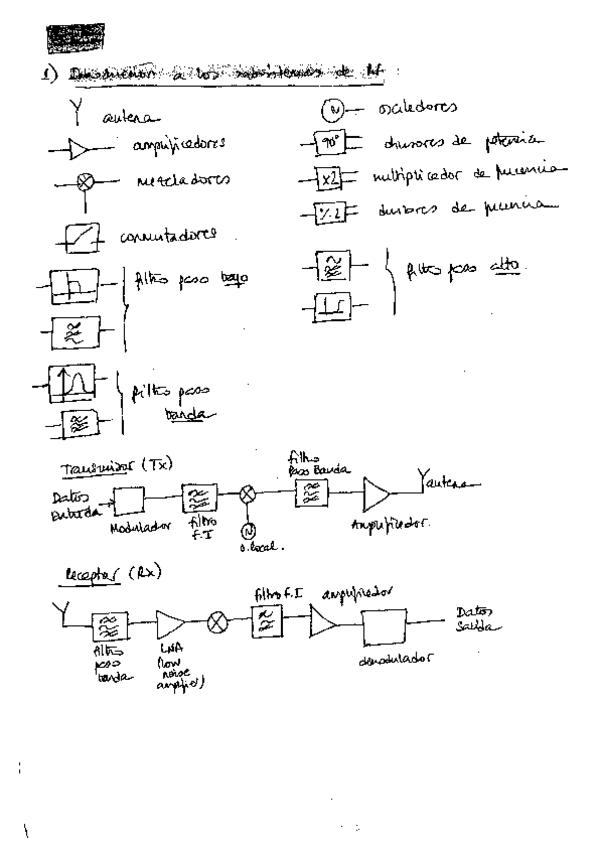 1) Introducción a los subsistemas de RF :
antena
amplificadores
mezcladores
conmutadores
filtro paso bajo
filtro paso
banda
N osciladores
90° divisores de potencia
x2 multiplicador de frecuencia
%2 divisores de frecuencia
filtro paso alto.
Transmisor (Tx)
Datos
Entrada
Modulador
filtro
F.I
o.local.
N
filtro
Paso Banda
Amplificador.
antena
Receptor (Rx)
filtro
paso
banda
LNA
(low
noise
amplifier)
filtro F.I
amplificador
demodulador
Datos
Salida